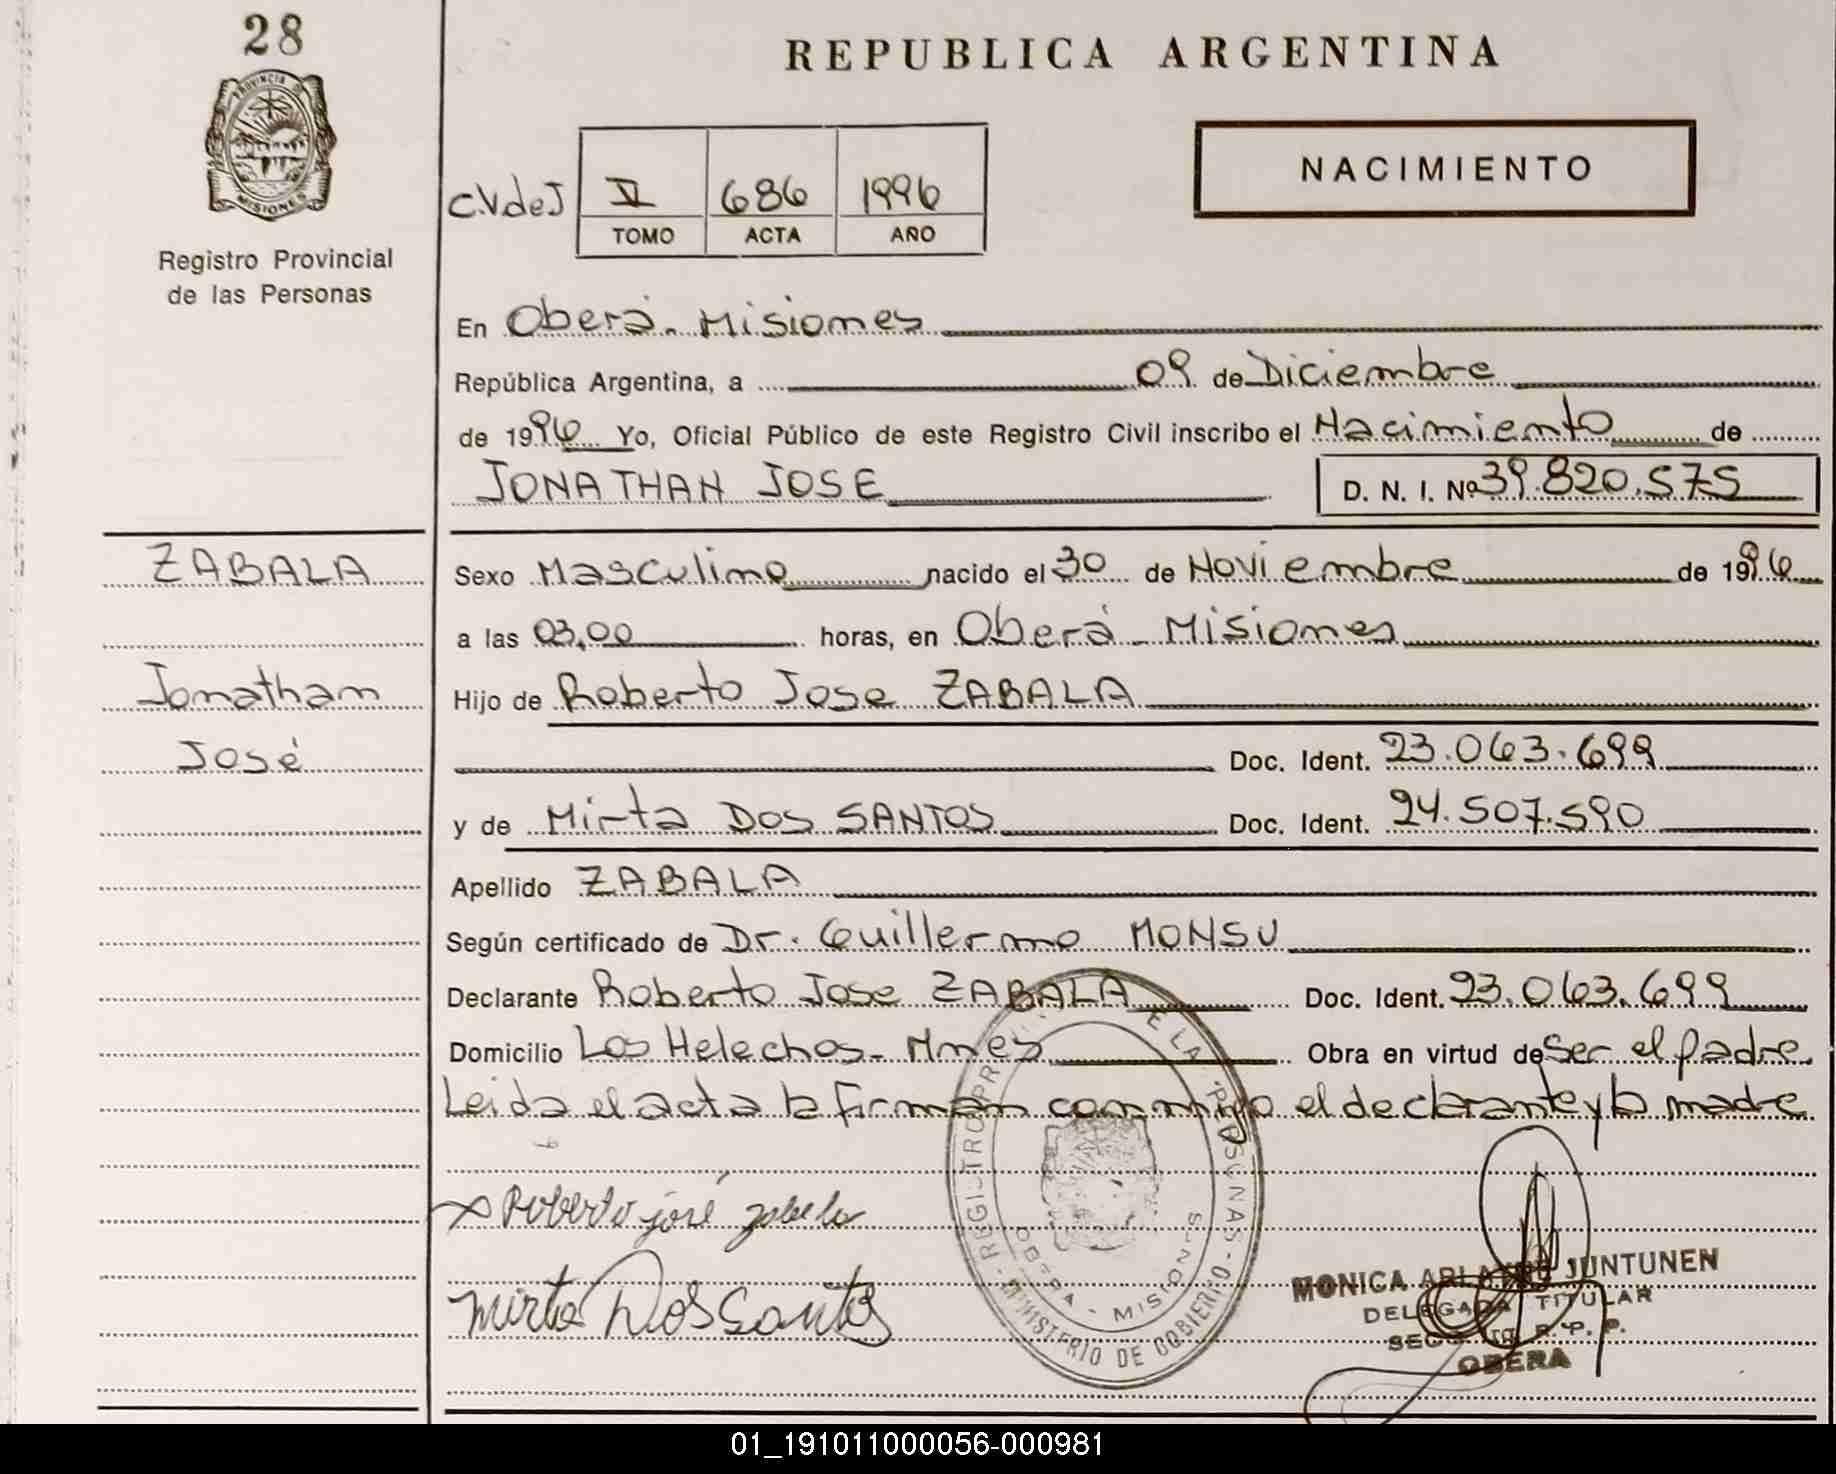 28
REPUBLICA ARGENTINA
PROVINCIA D
MISIONES
Registro Provincial
de las Personas
NACIMIENTO
C.V.deJ V 686 1996
TOMO ACTA AÑO
En Oberá - Misiones
República Argentina, a 09 de Diciembre
de 1996 Yo, Oficial Público de este Registro Civil inscribo el Nacimiento de
JONATHAN JOSE D. N. I. Nº 39.820.575
ZABALA
Jonathan
José
Sexo Masculino nacido el 30 de Noviembre de 1996
a las 03,00 horas, en Oberá - Misiones
Hijo de Roberto Jose ZABALA
Doc. Ident. 23.063.699
y de Mirta DOS SANTOS Doc. Ident. 24.507.590
Apellido ZABALA
Según certificado de Dr. Guillermo MONSU
Declarante Roberto Jose ZABALA Doc. Ident. 23.063.699
Domicilio Los Helechos - Mnes Obra en virtud de Ser el padre
Leida el acta la firman conmigo el declarante y la madre
Roberto josé zabala
Mirta Dos Santos
REGISTRO PR E LA PERSONAS - MINISTERIO DE GOBIERNO
OBERA - MISIONES
MONICA JUNTUNEN
DELEGADA TITULAR
R. P. P.
OBERA
01_191011000056-000981